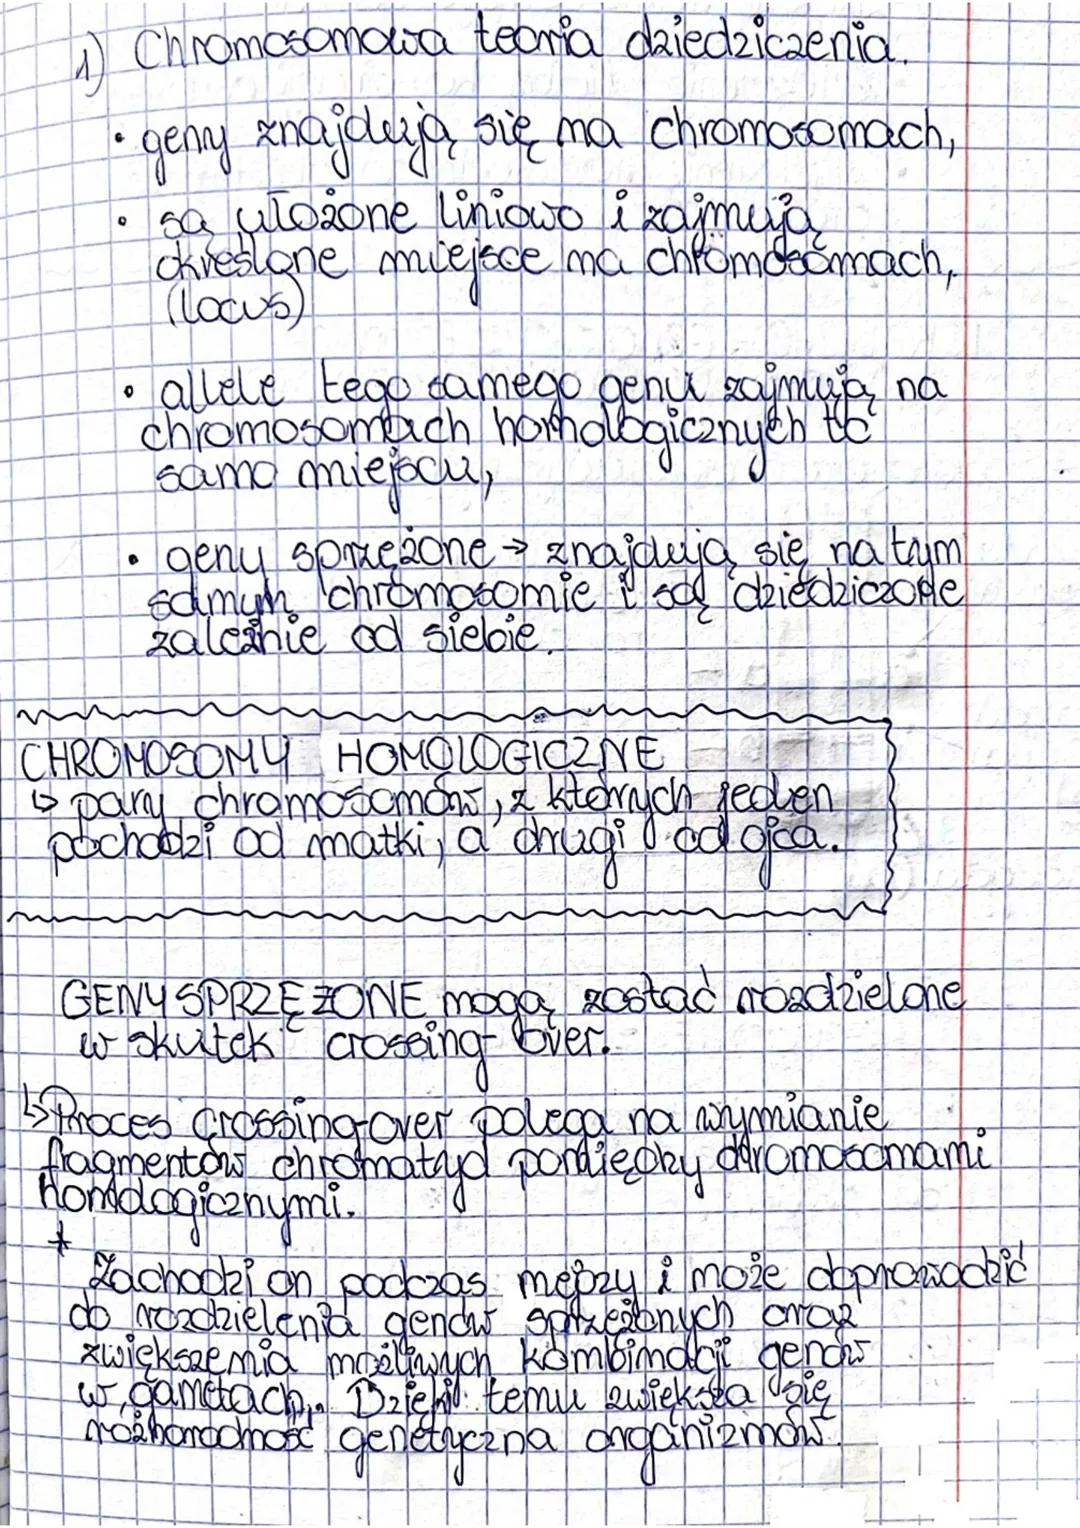 1) Chromosomowa teoria dziedziczenia.
• geny znajdują się na chromosomach,
• są ułożone liniowo i zajmują
określone miejsce na chromosomach,
(locus)
• allele tego samego genu zajmują na
chromosomach homologicznych to
samo miejscu,
• geny sprzężone → znajdują się na tym
samym chromosomie i są dziedziczone
zależnie od siebie.
CHROMOSOMY HOMOLOGICZNE
↳ pary chromosomów, z których jeden
pochodzi od matki, a drugi od ojca.
GENY SPRZĘŻONE mogą zostać rozdzielone
w skutek crossing-over.
↳ Proces crossing-over polega na wymianie
fragmentów chromatyd pomiędzy chromosomami
homologicznymi.
*
Zachodzi on podczas mejozy i może doprowadzić
do rozdzielenia genów sprzężonych oraz
zwiększenia możliwych kombinacji genów
w gametach. Dzięki temu zwiększa się
różnorodność genetyczna organizmów.